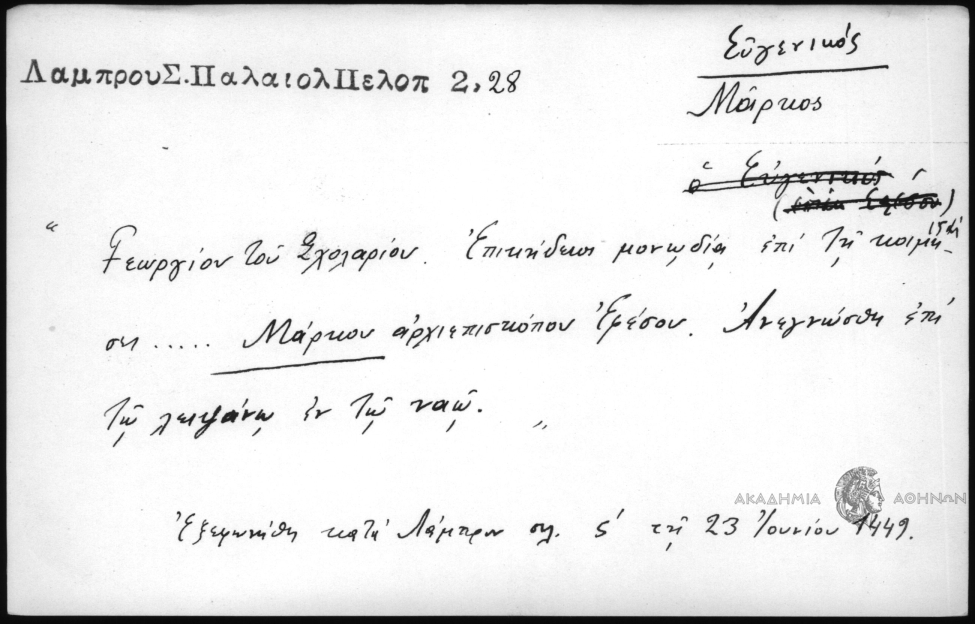 Εὐγενικός
ΛαμπρουΣ.ΠαλαιολΠελοπ 2,28
Μᾶρκος
ὁ Εὐγενικός
( Ἐφέσου)
15 αἰ
“ Γεωργίου τοῦ Σχολαρίου. Ἐπικήδειος μονῳδία ἐπὶ τῇ κοιμή-
σει ..... Μάρκου ἀρχιεπισκόπου Ἐφέσου. Ἀνεγνώσθη ἐπὶ
τῷ λειψάνῳ ἐν τῷ ναῷ. „
ΑΚΑΔΗΜΙΑ ΑΘΗΝΩΝ
Ἐξεφωνήθη κατὰ Λάμπρον σελ. ϛ' τῇ 23 Ἰουνίου 1449.